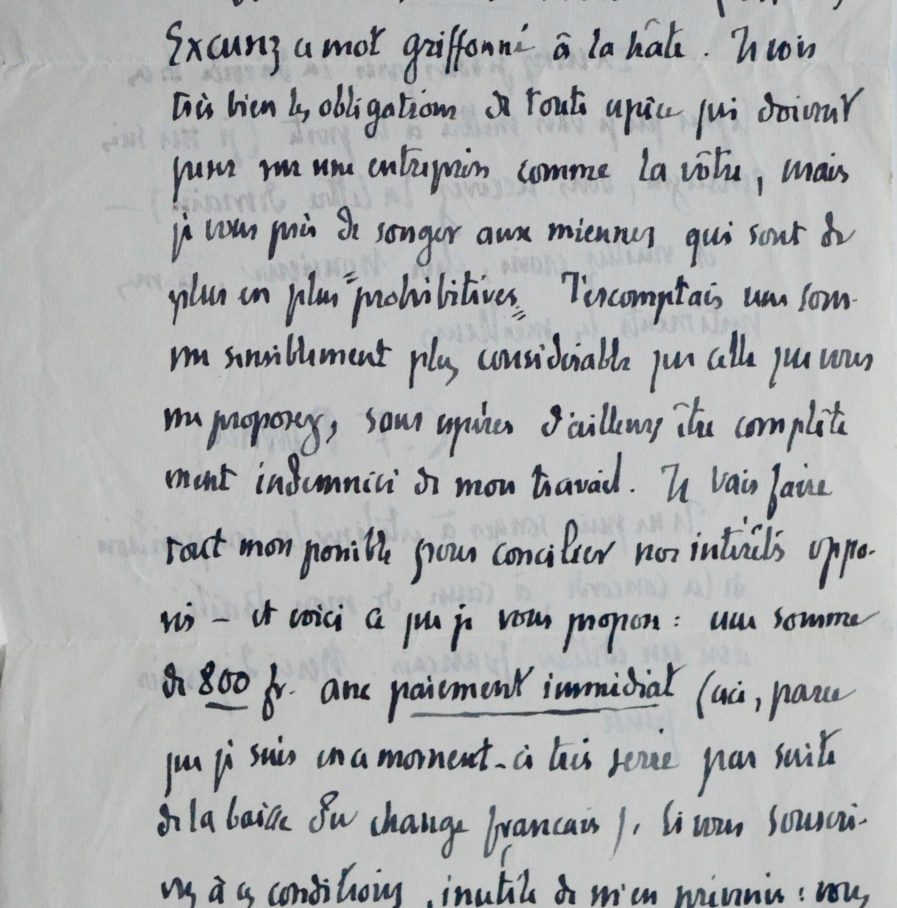 Excusez ce mot griffonné à la hâte. Je vois
très bien les obligations de toute espèce qui doivent
peser sur une entreprise comme la vôtre, mais
je vous prie de songer aux miennes qui sont de
plus en plus "prohibitives". J'escomptais une som-
me sensiblement plus considérable que celle que vous
me proposez, sans espérer d'ailleurs être complète
ment indemnisé de mon travail. Je vais faire
tout mon possible pour concilier nos intérêts oppo-
sés – et voici ce que je vous propose : une somme
de 800 fr. avec paiement immédiat (ceci, parce
que je suis en ce moment-ci très serré par suite
de la baisse du change français). Si vous souscri-
vez à ces conditions, inutile de m'en prévenir : vous